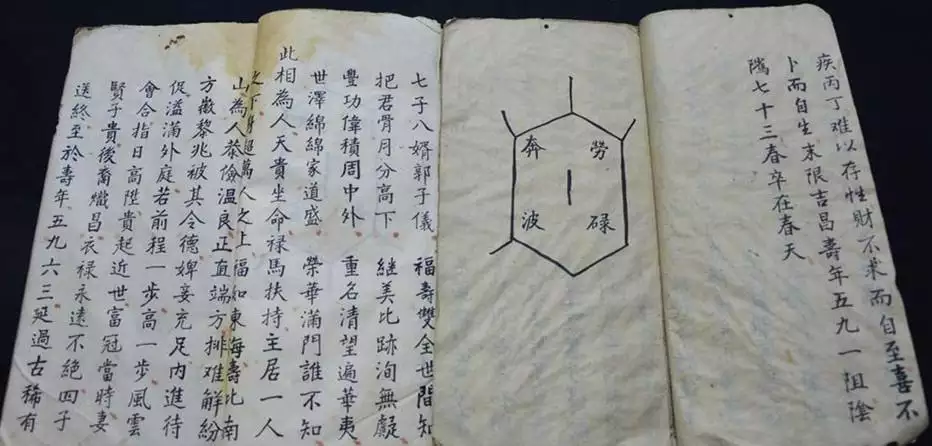 疾丙丁难以存性財不求而自至喜不
卜而自生末限吉昌壽年五九一阻陰
隲七十三春卒在春天
勞碌
奔波
七子八婿郭子儀 福壽雙全世間知
把君骨月分高下 继美比跡洵無疑
豐功偉積周中外 重名清望遍華夷
世澤綿綿家道盛 榮華滿門誰不知
此相為人天貴坐命禄馬扶持主居一人
之下身超萬人之上福如東海壽比南
山為人恭儉温良正直端方排难解紛
方徽黎兆被其令德婢妾充足内進待
促溢滿外庭若前程一步高一步風雲
會合指日高陞貴起近世富冠當時妻
賢子貴後裔熾昌衣禄永遠不絕四子
送終至於壽年五九六三延過古稀有